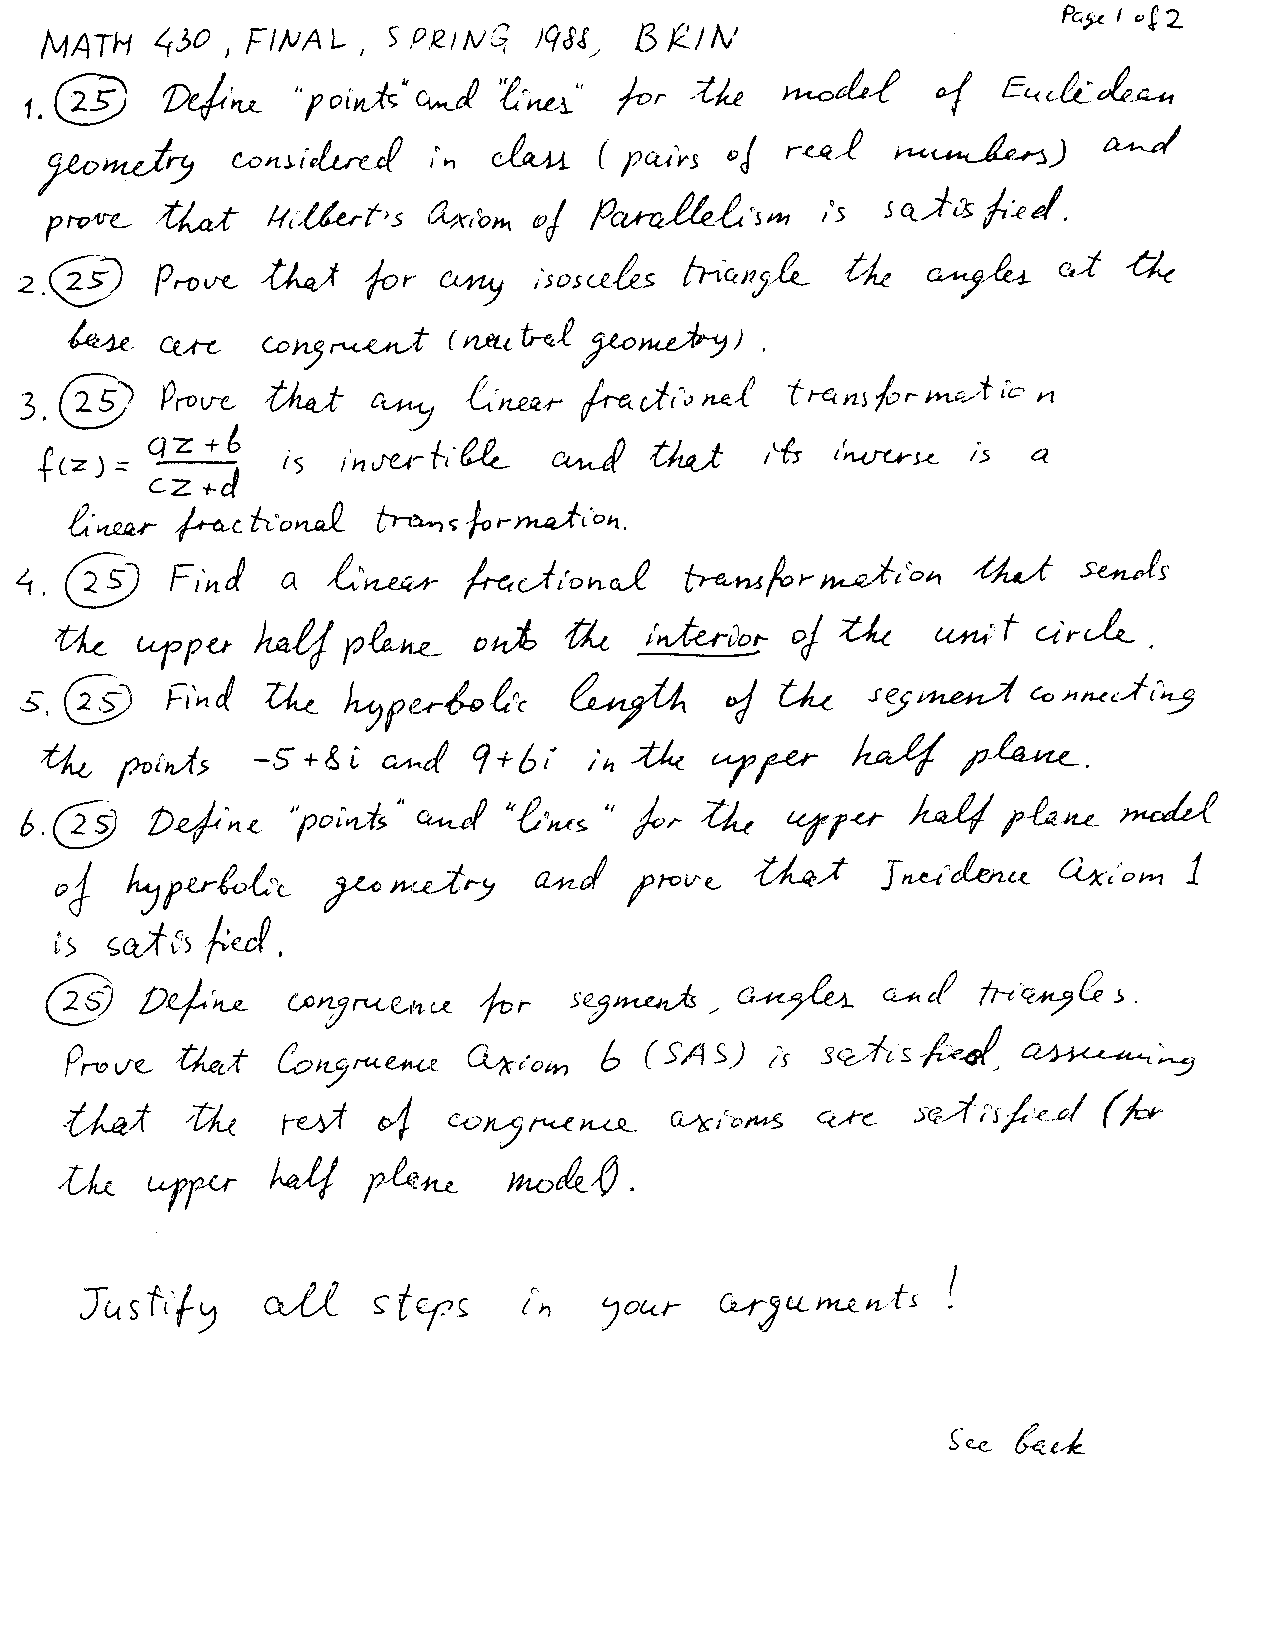 Page 1 of 2
MATH 430, FINAL, SPRING 1988, BRIN
1. (25) Define "points" and "lines" for the model of Euclidean
geometry considered in class (pairs of real numbers) and
prove that Hilbert's Axiom of Parallelism is satisfied.
2. (25) Prove that for any isosceles triangle the angles at the
base are congruent (neutral geometry).
3. (25) Prove that any linear fractional transformation
f(z) = \frac{az+b}{cz+d} is invertible and that its inverse is a
linear fractional transformation.
4. (25) Find a linear fractional transformation that sends
the upper half plane onto the interior of the unit circle.
5. (25) Find the hyperbolic length of the segment connecting
the points -5+8i and 9+6i in the upper half plane.
6. (25) Define "points" and "lines" for the upper half plane model
of hyperbolic geometry and prove that Incidence Axiom 1
is satisfied.
(25) Define congruence for segments, angles and triangles.
Prove that Congruence Axiom 6 (SAS) is satisfied, assuming
that the rest of congruence axioms are satisfied (for
the upper half plane model).
Justify all steps in your arguments!
See back